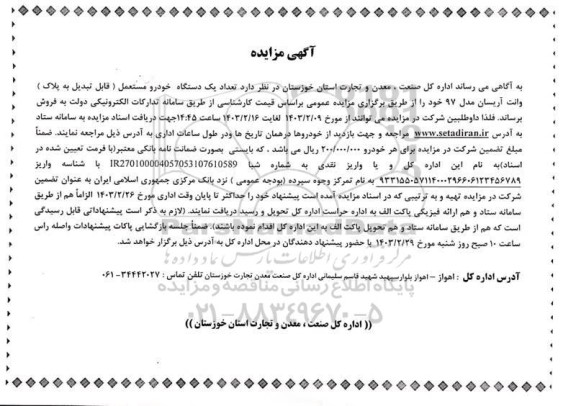 آگهی مزایده
به آگاهی می رساند اداره کل صنعت ، معدن و تجارت استان خوزستان در نظر دارد تعداد یک دستگاه خودرو مستعمل ( قابل تبدیل به پلاک )
وانت آریسان مدل ۹۷ خود را از طریق برگزاری مزایده عمومی براساس قیمت کارشناسی از طریق سامانه تدارکات الکترونیکی دولت به فروش
برساند. فلذا داوطلبین شرکت در مزایده می توانند از مورخ ۱۴۰۳/۲/۰۹ لغایت ۱۴۰۳/۲/۱۶ ساعت ۱۴:۴۵جهت دریافت اسناد مزایده به سامانه ستاد
به آدرس www.setadiran.ir مراجعه و جهت بازدید از خودروها درهمان تاریخ ها ودر طول ساعات اداری به آدرس ذیل مراجعه نمایند. ضمناً
مبلغ تضمین شرکت در مزایده برای هر خودرو ۲۰۰/۰۰۰/۰۰۰ ریال می باشد . که بایستی بصورت ضمانت نامه بانکی معتبر(با فرمت تعیین شده در
اسناد)به نام این اداره کل و یا واریز نقدی به شماره شبا IR270100004057053107610589 با شناسه واریز
۹۳۳۱۵۵۰۵۷۱۱۴۰۰۰۲۹۶۶۰۶۱۲۳۴۵۶۷۸۹ به نام تمرکز وجوه سپرده (بودجه عمومی ) نزد بانک مرکزی جمهوری اسلامی ایران به عنوان تضمین
شرکت در مزایده تهیه و به ترتیبی که در اسناد مزایده آمده است پیشنهاد خود را حداکثر تا پایان وقت اداری مورخ ۱۴۰۳/۲/۲۶ الزاماً هم از طریق
سامانه ستاد و هم ارائه فیزیکی پاکت الف به اداره حراست اداره کل تحویل و رسید دریافت نمایند. (لازم به ذکر است پیشنهاداتی قابل رسیدگی
است که هم از طریق سامانه ستاد و هم تحویل پاکت الف به این اداره کل اقدام نموده باشند). ضمناً جلسه بازگشایی پاکات پیشنهادات واصله راس
ساعت ۱۰ صبح روز شنبه مورخ ۱۴۰۳/۲/۲۹ با حضور پیشنهاد دهندگان در محل اداره کل به آدرس ذیل برگزار خواهد شد.
آدرس اداره کل : اهواز – اهواز بلوارسپهبد شهید قاسم سلیمانی اداره کل صنعت معدن تجارت خوزستان تلفن تماس : ۳۴۴۴۳۰۲۷-۰۶۱
(( اداره کل صنعت ، معدن و تجارت استان خوزستان ))
ParsNamadData
مرکز فرآوری اطلاعات پارس نماد داده ها
پایگاه اطلاع رسانی مناقصه و مزایده
۰۲۱-۸۸۳۴۹۶۷۰-۵